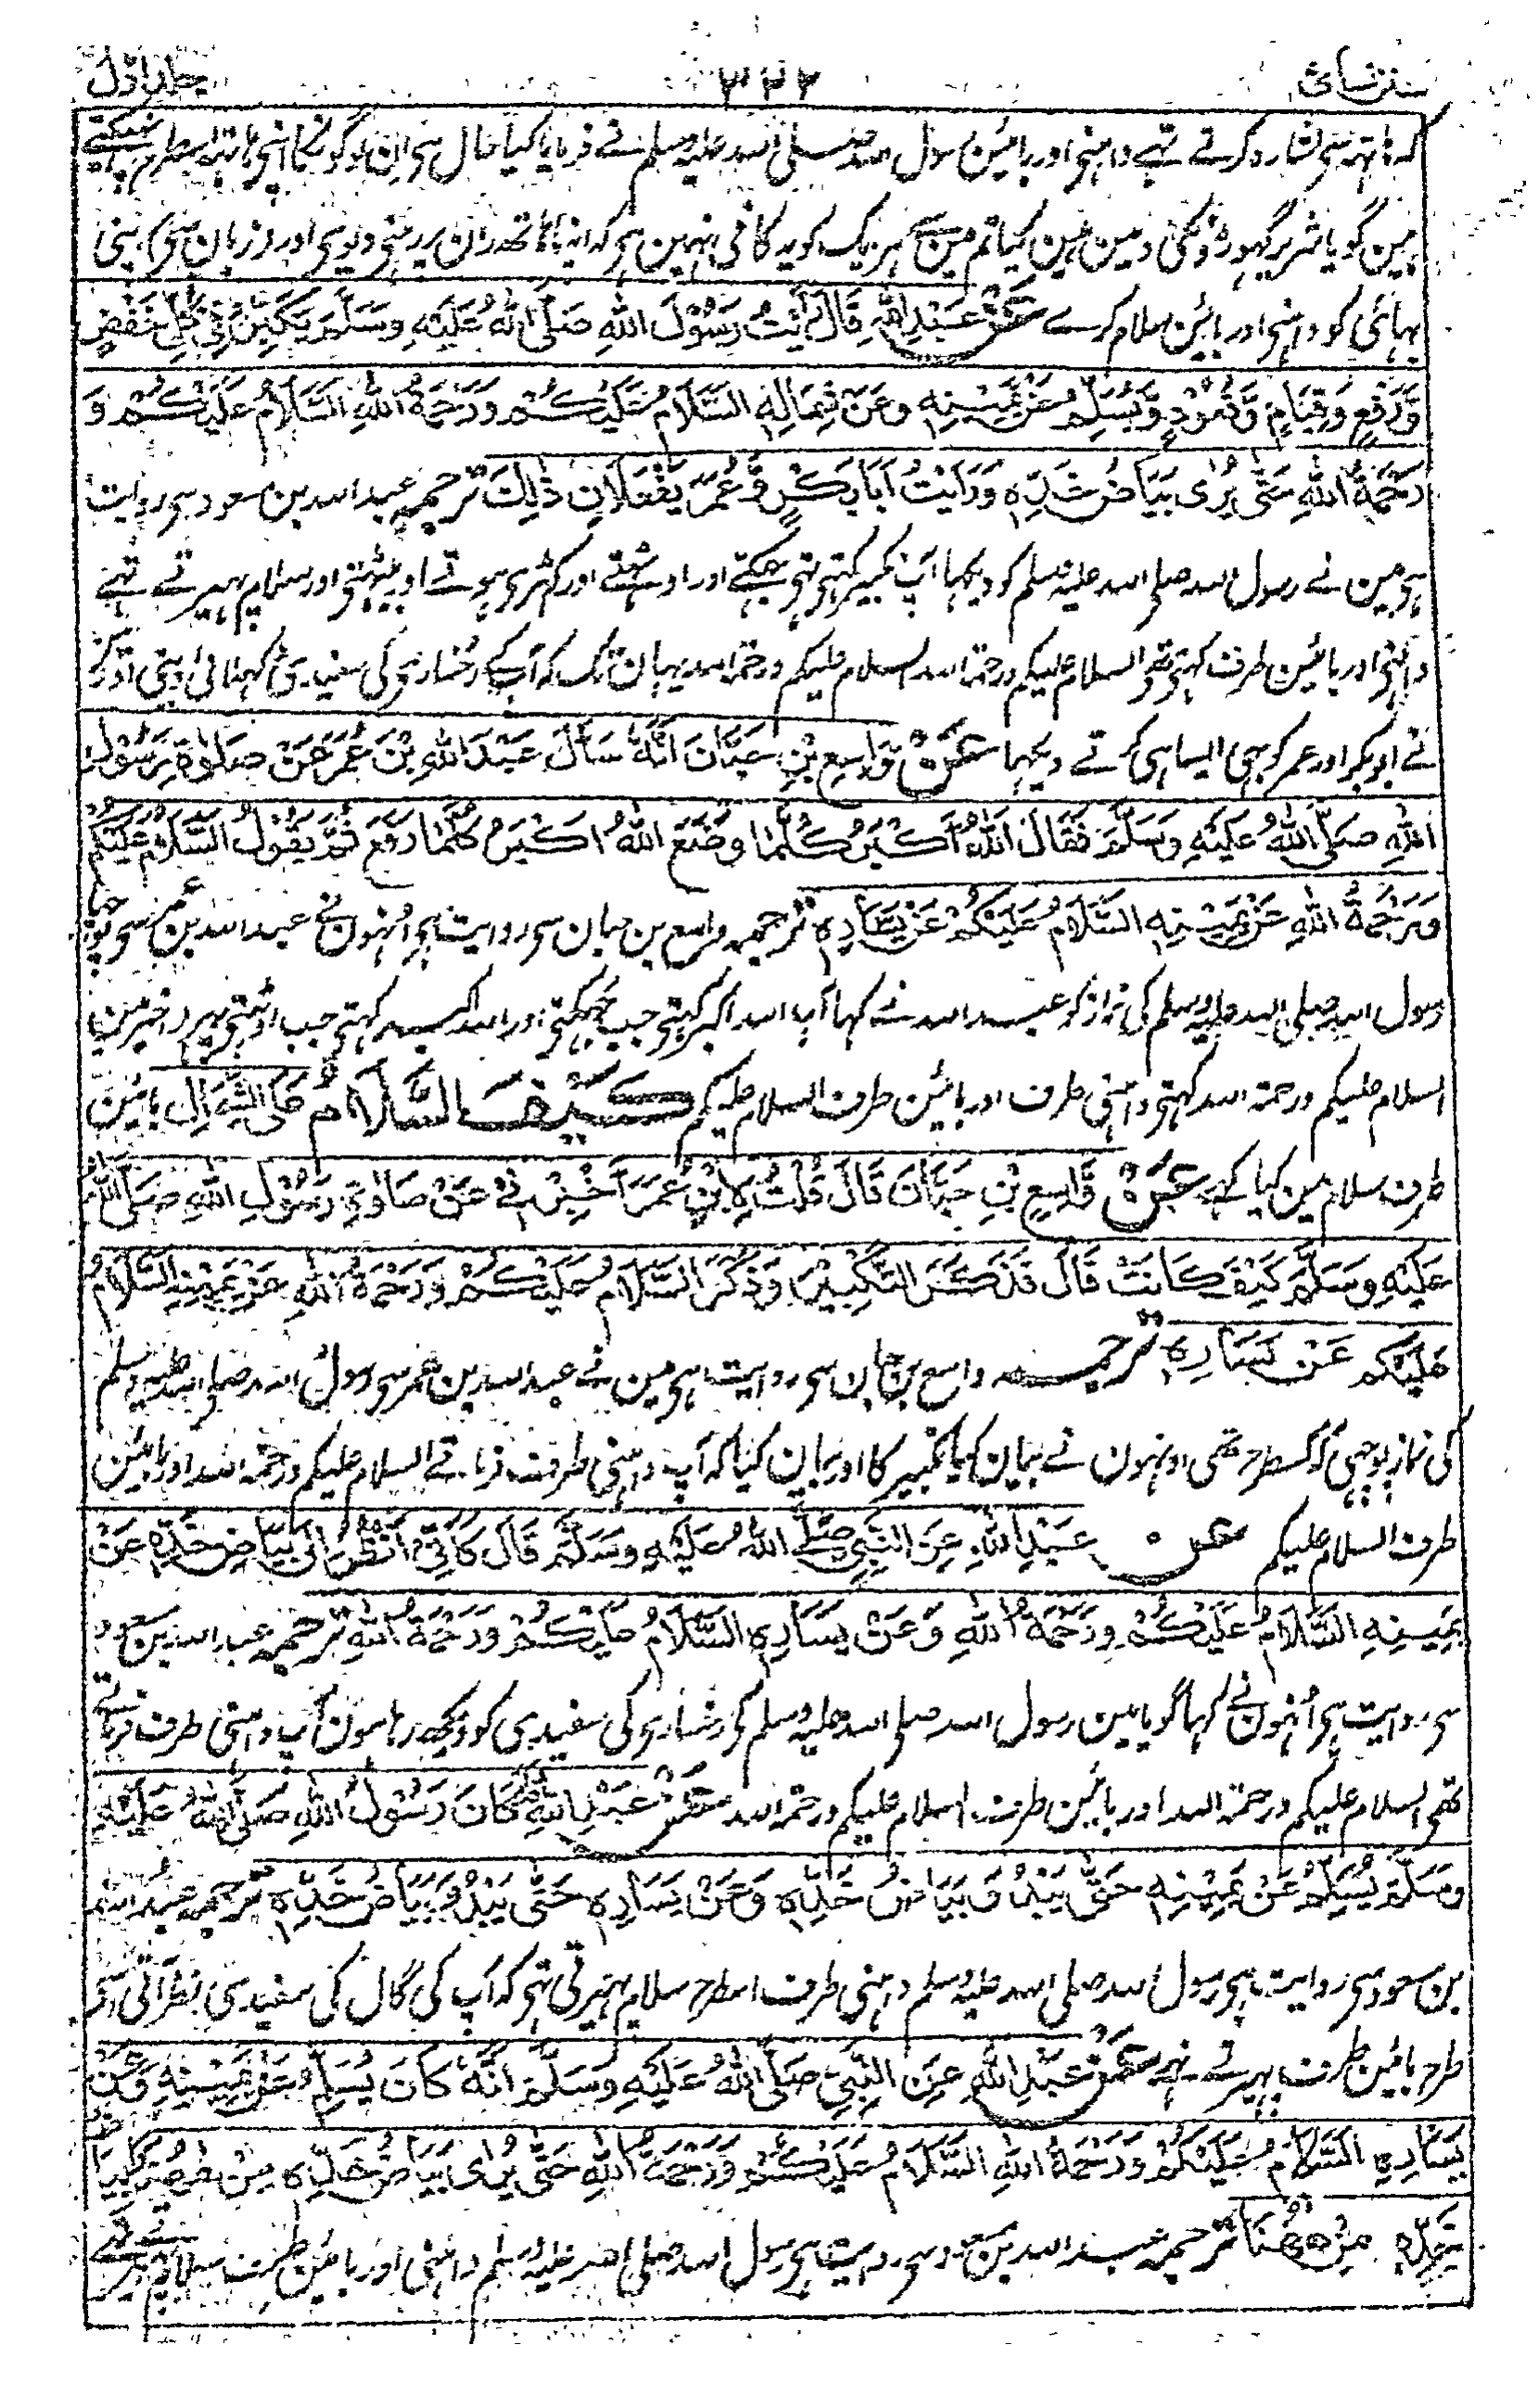 سنن نسائی ۳۴۲ جلد اول
کہ ہاتھہ سی اشارہ کرتے تہے داہنی اور بائین رسول اللہ صلی اللہ علیہ وسلم نے فرمایا کیا حال ہی ان لوگونکا اپنی ہاتہہ اسطرح پہینکتے
ہین گویا شریر گہوڑونکی دمین ہین کیا تم مین سے ہر یک کو یہ کافی نہین ہی کہ اپنا ہاتھہ ران پر رہنی دیوی اور زبان سی اپنی
بہائی کو داہنی اور بائین سلام کرے عَنْ عَبْدِ اللهِ قَالَ رَأَيْتُ رَسُوْلَ اللهِ صَلَّى اللهُ عَلَيْهِ وَسَلَّمَ يُكَبِّرُ فِيْ كُلِّ خَفْضٍ
وَّرَفْعٍ وَّقِيَامٍ وَّقُعُوْدٍ وَّيُسَلِّمُ عَنْ يَّمِيْنِهٖ وَعَنْ شِمَالِهٖ السَّلَامُ عَلَيْكُمْ وَرَحْمَةُ اللهِ السَّلَامُ عَلَيْكُمْ وَ
رَحْمَةُ اللهِ حَتّٰى يُرٰى بَيَاضُ خَدِّهٖ وَرَأَيْتُ اَبَا بَكْرٍ وَّعُمَرَ يَفْعَلَانِ ذٰلِكَ ترجمہ عبد اللہ بن مسعود سی روایت
ہی مین نے رسول اللہ صلی اللہ علیہ وسلم کو دیکہا آپ تکبیر کہتی تہی جہکتے اور اوٹہتے اور کہڑی ہوتے اور بیٹہتی اور سلام پہیرتے تہے
داہنی اور بائین طرف کہتی تہی السلام علیکم ورحمۃ اللہ السلام علیکم ورحمۃ اللہ یہان تک کہ آپ کے رخساری کی سفیدی دکہلائی دیتی اور مین
نے ابوبکر اور عمر کو بہی ایسا ہی کرتے دیکہا عَنْ وَّاسِعِ بْنِ حَبَّانَ اَنَّهٗ سَأَلَ عَبْدَ اللهِ بْنَ عُمَرَ عَنْ صَلٰوةِ رَسُوْلِ
اللهِ صَلَّى اللهُ عَلَيْهِ وَسَلَّمَ فَقَالَ اَللهُ اَكْبَرُ كُلَّمَا وَضَعَ اَللهُ اَكْبَرُ كُلَّمَا رَفَعَ ثُمَّ يَقُوْلُ السَّلَامُ عَلَيْكُمْ
وَرَحْمَةُ اللهِ عَنْ يَّمِيْنِهٖ السَّلَامُ عَلَيْكُمْ عَنْ يَّسَارِهٖ ترجمہ واسع بن حبان سی روایت ہی اُنہون نے عبد اللہ بن عمر سی پوچہا
رسول اللہ صلی اللہ علیہ وسلم کی نماز کو عبد اللہ نے کہا آپ اللہ اکبر کہتی جب جہکتی اور اللہ اکبر کہتی جب اوٹہتی پہر اخیر مین
السلام علیکم ورحمۃ اللہ کہتی داہنی طرف اور بائین طرف السلام علیکم كَيْفَ السَّلَامُ عَلَى الشِّمَالِ بائین
طرف سلام مین کیا کہے عَنْ وَّاسِعِ بْنِ حَبَّانَ قَالَ قُلْتُ لِابْنِ عُمَرَ اَخْبِرْنِيْ عَنْ صَلٰوةِ رَسُوْلِ اللهِ صَلَّى اللهُ
عَلَيْهِ وَسَلَّمَ كَيْفَ كَانَتْ قَالَ فَذَكَرَ التَّكْبِيْرَ وَذَكَرَ السَّلَامُ عَلَيْكُمْ وَرَحْمَةُ اللهِ عَنْ يَّمِيْنِهٖ السَّلَامُ
عَلَيْكُمْ عَنْ يَسَارِهٖ ترجمہ واسع بن حبان سی روایت ہی مین نے عبد اللہ بن عمر سی رسول اللہ صلی اللہ علیہ وسلم
کی نماز پوچہی کہ کسطرح تہی اونہون نے بیان کیا تکبیر کا اور بیان کیا کہ آپ داہنی طرف فرماتے السلام علیکم ورحمۃ اللہ اور بائین
طرف السلام علیکم عَنْ عَبْدِ اللهِ عَنِ النَّبِيِّ صَلَّى اللهُ عَلَيْهِ وَسَلَّمَ قَالَ كَاَنِّيْ اَنْظُرُ اِلٰى بَيَاضِ خَدِّهٖ عَنْ
يَمِيْنِهِ السَّلَامُ عَلَيْكُمْ وَرَحْمَةُ اللهِ وَعَنْ يَسَارِهِ السَّلَامُ عَلَيْكُمْ وَرَحْمَةُ اللهِ ترجمہ عبد اللہ بن مسعود
سی روایت ہی اُنہون نے کہا گویا مین رسول اللہ صلی اللہ علیہ وسلم کی رخساری کی سفیدی کو دیکھہ رہا ہون آپ داہنی طرف فرماتے
تہی السلام علیکم ورحمۃ اللہ اور بائین طرف السلام علیکم ورحمۃ اللہ عَنْ عَبْدِ اللهِ كَانَ رَسُوْلُ اللهِ صَلَّى اللهُ عَلَيْهِ
وَسَلَّمَ يُسَلِّمُ عَنْ يَّمِيْنِهٖ حَتّٰى يَبْدُوَ بَيَاضُ خَدِّهٖ وَعَنْ يَسَارِهٖ حَتّٰى يَبْدُوَ بَيَاضُ خَدِّهٖ ترجمہ عبد اللہ
بن مسعود سی روایت ہی رسول اللہ صلی اللہ علیہ وسلم داہنی طرف اسطرح سلام پہیرتی تہی کہ آپ کی گال کی سفیدی نظر آتی اسی
طرح بائین طرف پہیرتے تہے عَنْ عَبْدِ اللهِ عَنِ النَّبِيِّ صَلَّى اللهُ عَلَيْهِ وَسَلَّمَ اَنَّهٗ كَانَ يُسَلِّمُ عَنْ يَّمِيْنِهٖ وَعَنْ
يَسَارِهٖ السَّلَامُ عَلَيْكُمْ وَرَحْمَةُ اللهِ السَّلَامُ عَلَيْكُمْ وَرَحْمَةُ اللهِ حَتّٰى يُرٰى بَيَاضُ خَدِّهٖ مِنْ هٰهُنَا وَبَيَاضُ
خَدِّهٖ مِنْ هٰهُنَا ترجمہ عبد اللہ بن مسعود سی روایت ہی رسول اللہ صلی اللہ علیہ وسلم داہنی اور بائین طرف سلام پہیرتے تہے